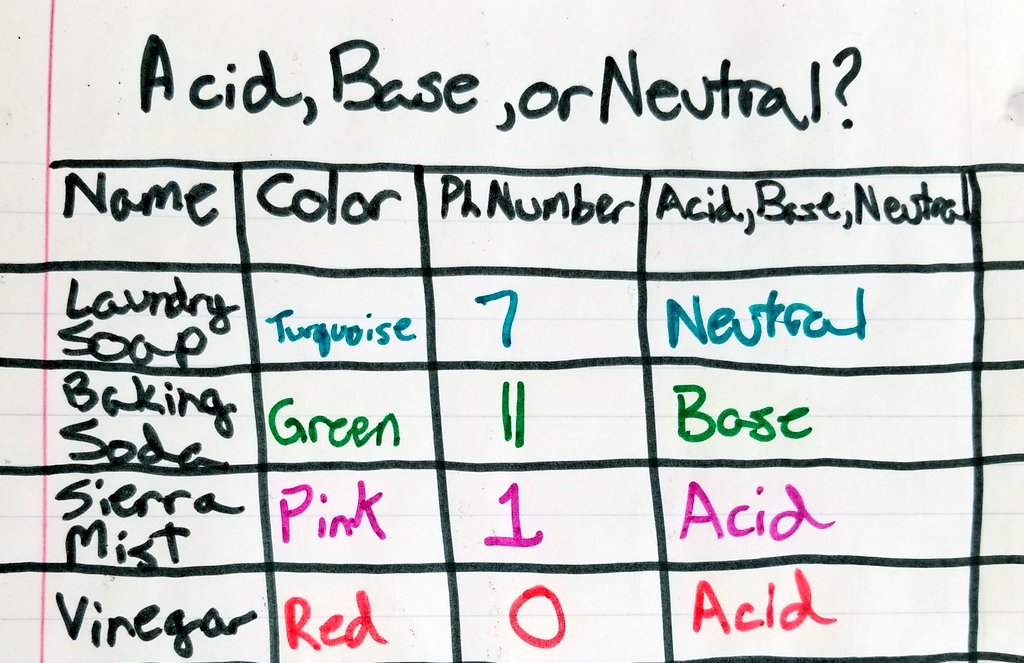 Acid, Base, or Neutral?
Name Color Ph Number Acid, Base, Neutral
Laundry
Soap Turquoise 7 Neutral
Baking
Soda Green 11 Base
Sierra
Mist Pink 1 Acid
Vinegar Red 0 Acid